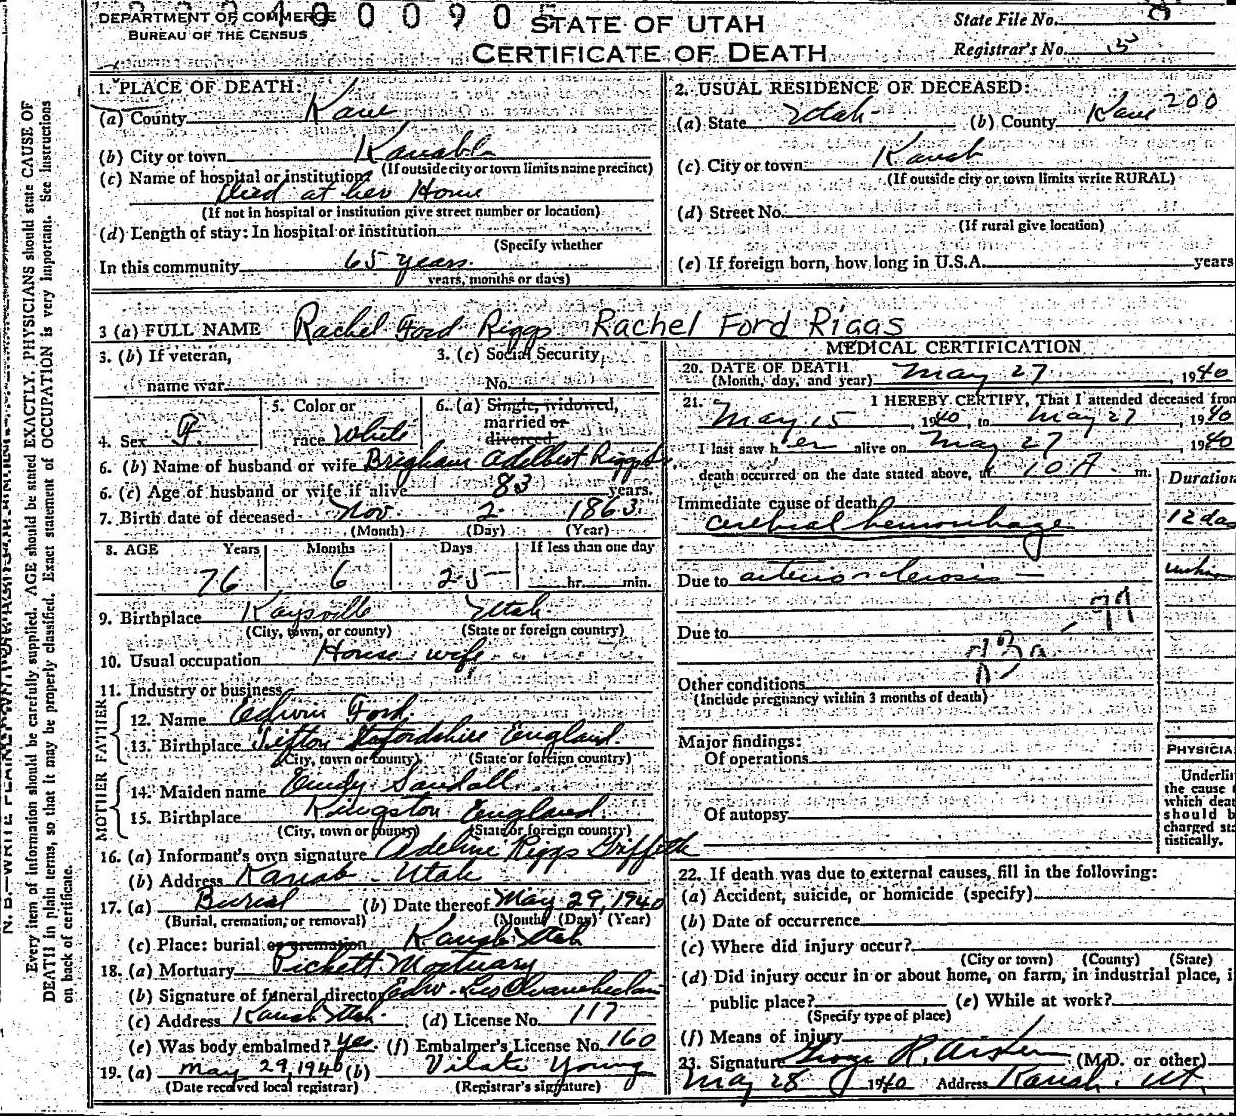 DEPARTMENT OF COMMERCE
BUREAU OF THE CENSUS
STATE OF UTAH
CERTIFICATE OF DEATH
State File No. 8
Registrar's No. 3
1. PLACE OF DEATH:
(a) County Kane
(b) City or town Kanab
(If outside city or town limits name precinct)
(c) Name of hospital or institution
Died at her Home
(If not in hospital or institution give street number or location)
(d) Length of stay: In hospital or institution
(Specify whether
In this community 65 years.
years, months or days)
2. USUAL RESIDENCE OF DECEASED:
(a) State Utah (b) County Kane 200
(c) City or town Kanab
(If outside city or town limits write RURAL)
(d) Street No.
(If rural give location)
(e) If foreign born, how long in U.S.A. years
3 (a) FULL NAME Rachel Ford Riggs Rachel Ford Riggs
3. (b) If veteran,
name war
3. (c) Social Security
No.
4. Sex F.
5. Color or
race White
6. (a) Single, widowed,
married or
divorced
6. (b) Name of husband or wife Brigham Adelbert Riggs
6. (c) Age of husband or wife if alive 83 years.
7. Birth date of deceased Nov 2 1863
(Month) (Day) (Year)
8. AGE Years Months Days If less than one day
76 6 25 hr. min.
9. Birthplace Kaysville Utah
(City, town, or county) (State or foreign country)
10. Usual occupation House wife
11. Industry or business
FATHER
12. Name Edwin Ford
13. Birthplace Staffordshire England
(City, town or county) (State or foreign country)
MOTHER
14. Maiden name Sandall
15. Birthplace Kingston England
(City, town or county) (State or foreign country)
16. (a) Informant's own signature Adeline Riggs Griffith
(b) Address Kanab - Utah
17. (a) Burial (b) Date thereof May 29, 1940
(Burial, cremation, or removal) (Month) (Day) (Year)
(c) Place: burial or cremation Kanab Utah
18. (a) Mortuary Pickett Mortuary
(b) Signature of funeral director
(c) Address Kanab Utah (d) License No. 117
(e) Was body embalmed? yes (f) Embalmer's License No. 160
19. (a) May 29, 1940 (b) Vilate Young
(Date received local registrar) (Registrar's signature)
MEDICAL CERTIFICATION
20. DATE OF DEATH
(Month, day, and year) May 27, 1940
21. I HEREBY CERTIFY, That I attended deceased from
May 15, 1940, to May 27, 1940
I last saw her alive on May 27, 1940
death occurred on the date stated above, at 10 A. m.
Duration
Immediate cause of death
cerebral hemorrhage 12 das
Due to arterio sclerosis
Due to
83a
Other conditions
(Include pregnancy within 3 months of death)
Major findings:
Of operations
Of autopsy
PHYSICIA
Underli
the cause
which deat
should b
charged sta
tistically.
22. If death was due to external causes, fill in the following:
(a) Accident, suicide, or homicide (specify)
(b) Date of occurrence
(c) Where did injury occur?
(City or town) (County) (State)
(d) Did injury occur in or about home, on farm, in industrial place, i
public place? (e) While at work?
(Specify type of place)
(f) Means of injury
23. Signature George R. Aiken (M.D. or other)
May 28 1940 Address Kanab. Ut.
Every item of information should be carefully supplied. AGE should be stated EXACTLY. PHYSICIANS should state CAUSE OF
DEATH in plain terms, so that it may be properly classified. Exact statement of OCCUPATION is very important. See instructions
on back of certificate.